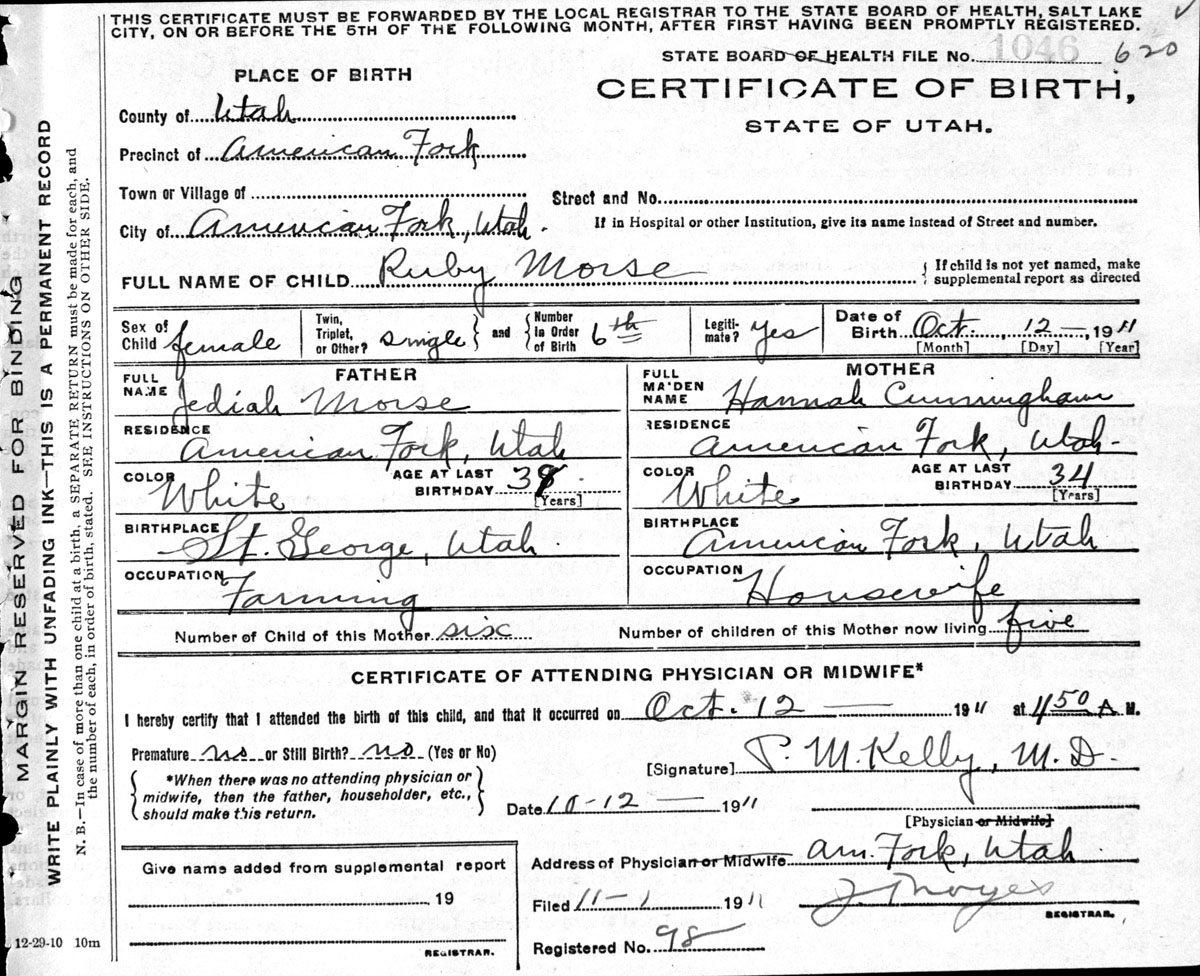 THIS CERTIFICATE MUST BE FORWARDED BY THE LOCAL REGISTRAR TO THE STATE BOARD OF HEALTH, SALT LAKE
CITY, ON OR BEFORE THE 5TH OF THE FOLLOWING MONTH, AFTER FIRST HAVING BEEN PROMPTLY REGISTERED.
STATE BOARD OF HEALTH FILE No. 1046 620
PLACE OF BIRTH
CERTIFICATE OF BIRTH,
STATE OF UTAH.
County of Utah
Precinct of American Fork
Town or Village of
Street and No.
City of American Fork, Utah.
If in Hospital or other Institution, give its name instead of Street and number.
FULL NAME OF CHILD Ruby Morse
If child is not yet named, make
supplemental report as directed
Sex of Child female
Twin, Triplet, or Other? single and Number in Order of Birth 6th
Legiti-mate? Yes
Date of Birth Oct. 12 - 1911
[Month] [Day] [Year]
FATHER
FULL NAME Jediah Morse
RESIDENCE American Fork, Utah
COLOR White
AGE AT LAST BIRTHDAY 38 [Years]
BIRTHPLACE St. George, Utah
OCCUPATION Farming
MOTHER
FULL MAIDEN NAME Hannah Cunningham
RESIDENCE American Fork, Utah-
COLOR White
AGE AT LAST BIRTHDAY 34 [Years]
BIRTHPLACE American Fork, Utah
OCCUPATION Housewife
Number of Child of this Mother six
Number of children of this Mother now living five
CERTIFICATE OF ATTENDING PHYSICIAN OR MIDWIFE*
I hereby certify that I attended the birth of this child, and that it occurred on Oct. 12 — 1911 at 450 A M.
Premature no or Still Birth? no (Yes or No)
[Signature] P. M. Kelly, M.D.
*When there was no attending physician or
midwife, then the father, householder, etc.,
should make this return.
Date 10-12 — 1911
[Physician or Midwife]
Give name added from supplemental report
19
REGISTRAR.
Address of Physician or Midwife Am. Fork, Utah
Filed 11-1 1911
REGISTRAR.
Registered No. 98
12-29-10 10m
MARGIN RESERVED FOR BINDING
WRITE PLAINLY WITH UNFADING INK—THIS IS A PERMANENT RECORD
N. B.—In case of more than one child at a birth, a SEPARATE RETURN must be made for each, and
the number of each, in order of birth, stated. SEE INSTRUCTIONS ON OTHER SIDE.